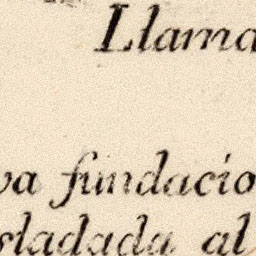 Llama
va fundacio
sladada al